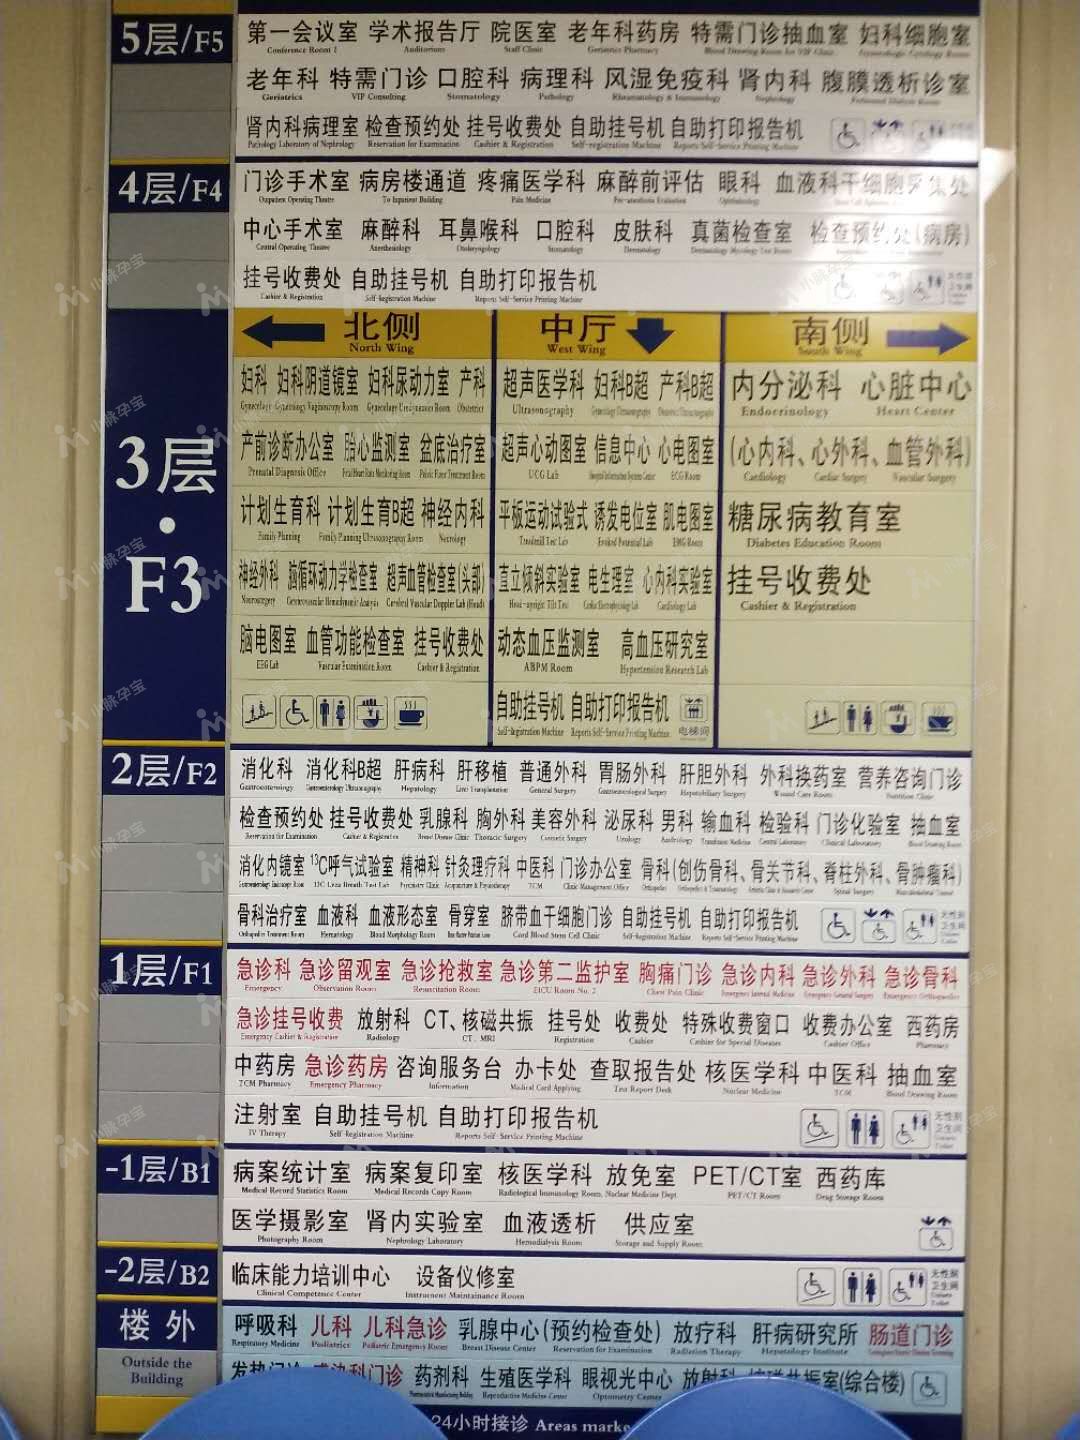 5层/F5
第一会议室 学术报告厅 院医室 老年科药房 特需门诊抽血室 妇科细胞室
Conference Room 1 Auditorium Staff Clinic Geriatrics Pharmacy Blood Drawing Room for VIP Clinic
老年科 特需门诊 口腔科 病理科 风湿免疫科 肾内科 腹膜透析诊室
Geriatrics VIP Consulting Stomatology Pathology Rheumatology & Immunology Nephrology
肾内科病理室 检查预约处 挂号收费处 自助挂号机 自助打印报告机
Pathology Laboratory of Nephrology Reservation for Examination Cashier & Registration Self-registration Machine Reports Self-Service Printing Machine
4层/F4
门诊手术室 病房楼通道 疼痛医学科 麻醉前评估 眼科 血液科干细胞采集处
Outpatient Operating Theatre To Inpatient Building Pain Medicine Pre-anesthesia Evaluation Ophthalmology
中心手术室 麻醉科 耳鼻喉科 口腔科 皮肤科 真菌检查室 检查预约处(病房)
Central Operating Theatre Anesthesiology Otolaryngology Stomatology Dermatology Dermatology Mycology Test Room
挂号收费处 自助挂号机 自助打印报告机
Cashier & Registration Self-Registration Machine Reports Self-Service Printing Machine
无性别卫生间
3层·F3
北侧 中厅 南侧
North Wing West Wing South Wing
妇科 妇科阴道镜室 妇科尿动力室 产科 超声医学科 妇科B超 产科B超 内分泌科 心脏中心
Gynecology Gynecology Vaginoscopy Room Gynecology Urodynamics Room Obstetrics Ultrasonography Endocrinology Heart Center
产前诊断办公室 胎心监测室 盆底治疗室 超声心动图室 信息中心 心电图室 (心内科、心外科、血管外科)
Prenatal Diagnosis Office Fetal Heart Rate Monitoring Room Pelvic Floor Treatment Room UCG Lab Hospital Information System Center ECG Room Cardiology Cardiac Surgery Vascular Surgery
计划生育科 计划生育B超 神经内科 平板运动试验式 诱发电位室 肌电图室 糖尿病教育室
Family Planning Family Planning Ultrasonography Room Neurology Treadmill Test Lab Evoked Potential Lab EMG Room Diabetes Education Room
神经外科 脑循环动力学检查室 超声血管检查室(头部) 直立倾斜实验室 电生理室 心内科实验室 挂号收费处
Neurosurgery Cerebrovascular Hemodynamic Analysis Cerebral Vascular Doppler Lab (Head) Head-upright Tilt Test Cardiology Lab Cashier & Registration
脑电图室 血管功能检查室 挂号收费处 动态血压监测室 高血压研究室
EEG Lab Vascular Examination Room Cashier & Registration ABPM Room Hypertension Research Lab
自助挂号机 自助打印报告机 电梯间
Self-Registration Machine Reports Self-Service Printing Machine
2层/F2
消化科 消化科B超 肝病科 肝移植 普通外科 胃肠外科 肝胆外科 外科换药室 营养咨询门诊
Gastroenterology Gastroenterology Ultrasonography Hepatology Liver Transplantation General Surgery Gastroenterological Surgery Hepatobiliary Surgery Wound Care Room Nutrition Clinic
检查预约处 挂号收费处 乳腺科 胸外科 美容外科 泌尿科 男科 输血科 检验科 门诊化验室 抽血室
Reservation for Examination Cashier & Registration Breast Disease Clinic Thoracic Surgery Cosmetic Surgery Urology Andrology Transfusion Medicine Central Laboratory Clinical Laboratory Blood Drawing Room
消化内镜室 ¹³C呼气试验室 精神科 针灸理疗科 中医科 门诊办公室 骨科(创伤骨科、骨关节科、脊柱外科、骨肿瘤科)
Gastroenterology Endoscopy Room 13C Urea Breath Test Lab Psychiatry Clinic Acupuncture & Physiotherapy TCM Clinic Management Office Orthopedics Orthopedics & Traumatology Spinal Surgery
骨科治疗室 血液科 血液形态室 骨穿室 脐带血干细胞门诊 自助挂号机 自助打印报告机
Orthopedics Treatment Room Hematology Blood Morphology Room Cord Blood Stem Cell Clinic Self-Registration Machine Reports Self-Service Printing Machine
无性别卫生间
1层/F1
急诊科 急诊留观室 急诊抢救室 急诊第二监护室 胸痛门诊 急诊内科 急诊外科 急诊骨科
Emergency Observation Room Resuscitation Room EICU Room No. 2 Chest Pain Clinic Emergency Internal Medicine Emergency General Surgery Emergency Orthopaedics
急诊挂号收费 放射科 CT、核磁共振 挂号处 收费处 特殊收费窗口 收费办公室 西药房
Emergency Cashier & Registration Radiology CT、MRI Registration Cashier Cashier for Special Diseases Cashier Office Pharmacy
中药房 急诊药房 咨询服务台 办卡处 查取报告处 核医学科 中医科 抽血室
TCM Pharmacy Emergency Pharmacy Information Medical Card Applying Test Report Desk Nuclear Medicine TCM Blood Drawing Room
注射室 自助挂号机 自助打印报告机
IV Therapy Self-Registration Machine Reports Self-Service Printing Machine
无性别卫生间
-1层/B1
病案统计室 病案复印室 核医学科 放免室 PET/CT室 西药库
Medical Record Statistics Room Medical Records Copy Room Radiological Immunology Room, Nuclear Medicine Dept PET/CT Room Drug Storage Room
医学摄影室 肾内实验室 血液透析 供应室
Photography Room Nephrology Laboratory Hemodialysis Room Storage and Supply Room
-2层/B2
临床能力培训中心 设备仪修室
Clinical Competence Center Instrument Maintainance Room
无性别卫生间
楼外
Outside the Building
呼吸科 儿科 儿科急诊 乳腺中心(预约检查处) 放疗科 肝病研究所 肠道门诊
Respiratory Medicine Pediatrics Pediatric Emergency Room Breast Disease Center Reservation for Examination Radiation Therapy Hepatology Institute
发热门诊 感染科门诊 药剂科 生殖医学科 眼视光中心 放射科 核磁共振室(综合楼)
Pharmaceutical Manufacturing Building Reproductive Medicine Center Optometry Center
24小时接诊 Areas marke
小脉孕宝